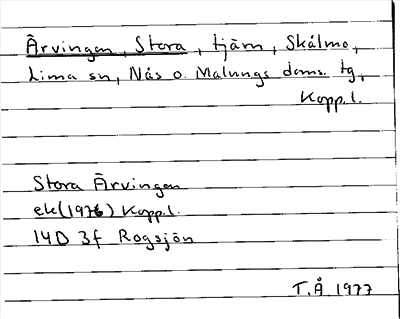 Ärvingen, Stora, tjärn, Skålmo,
Lima sn, Nås o. Malungs doms. tg,
Kopp.l.
Stora Ärvingen
ek(1976) Kopp.l.
14D 3f Rogsjön
T.Å 1977